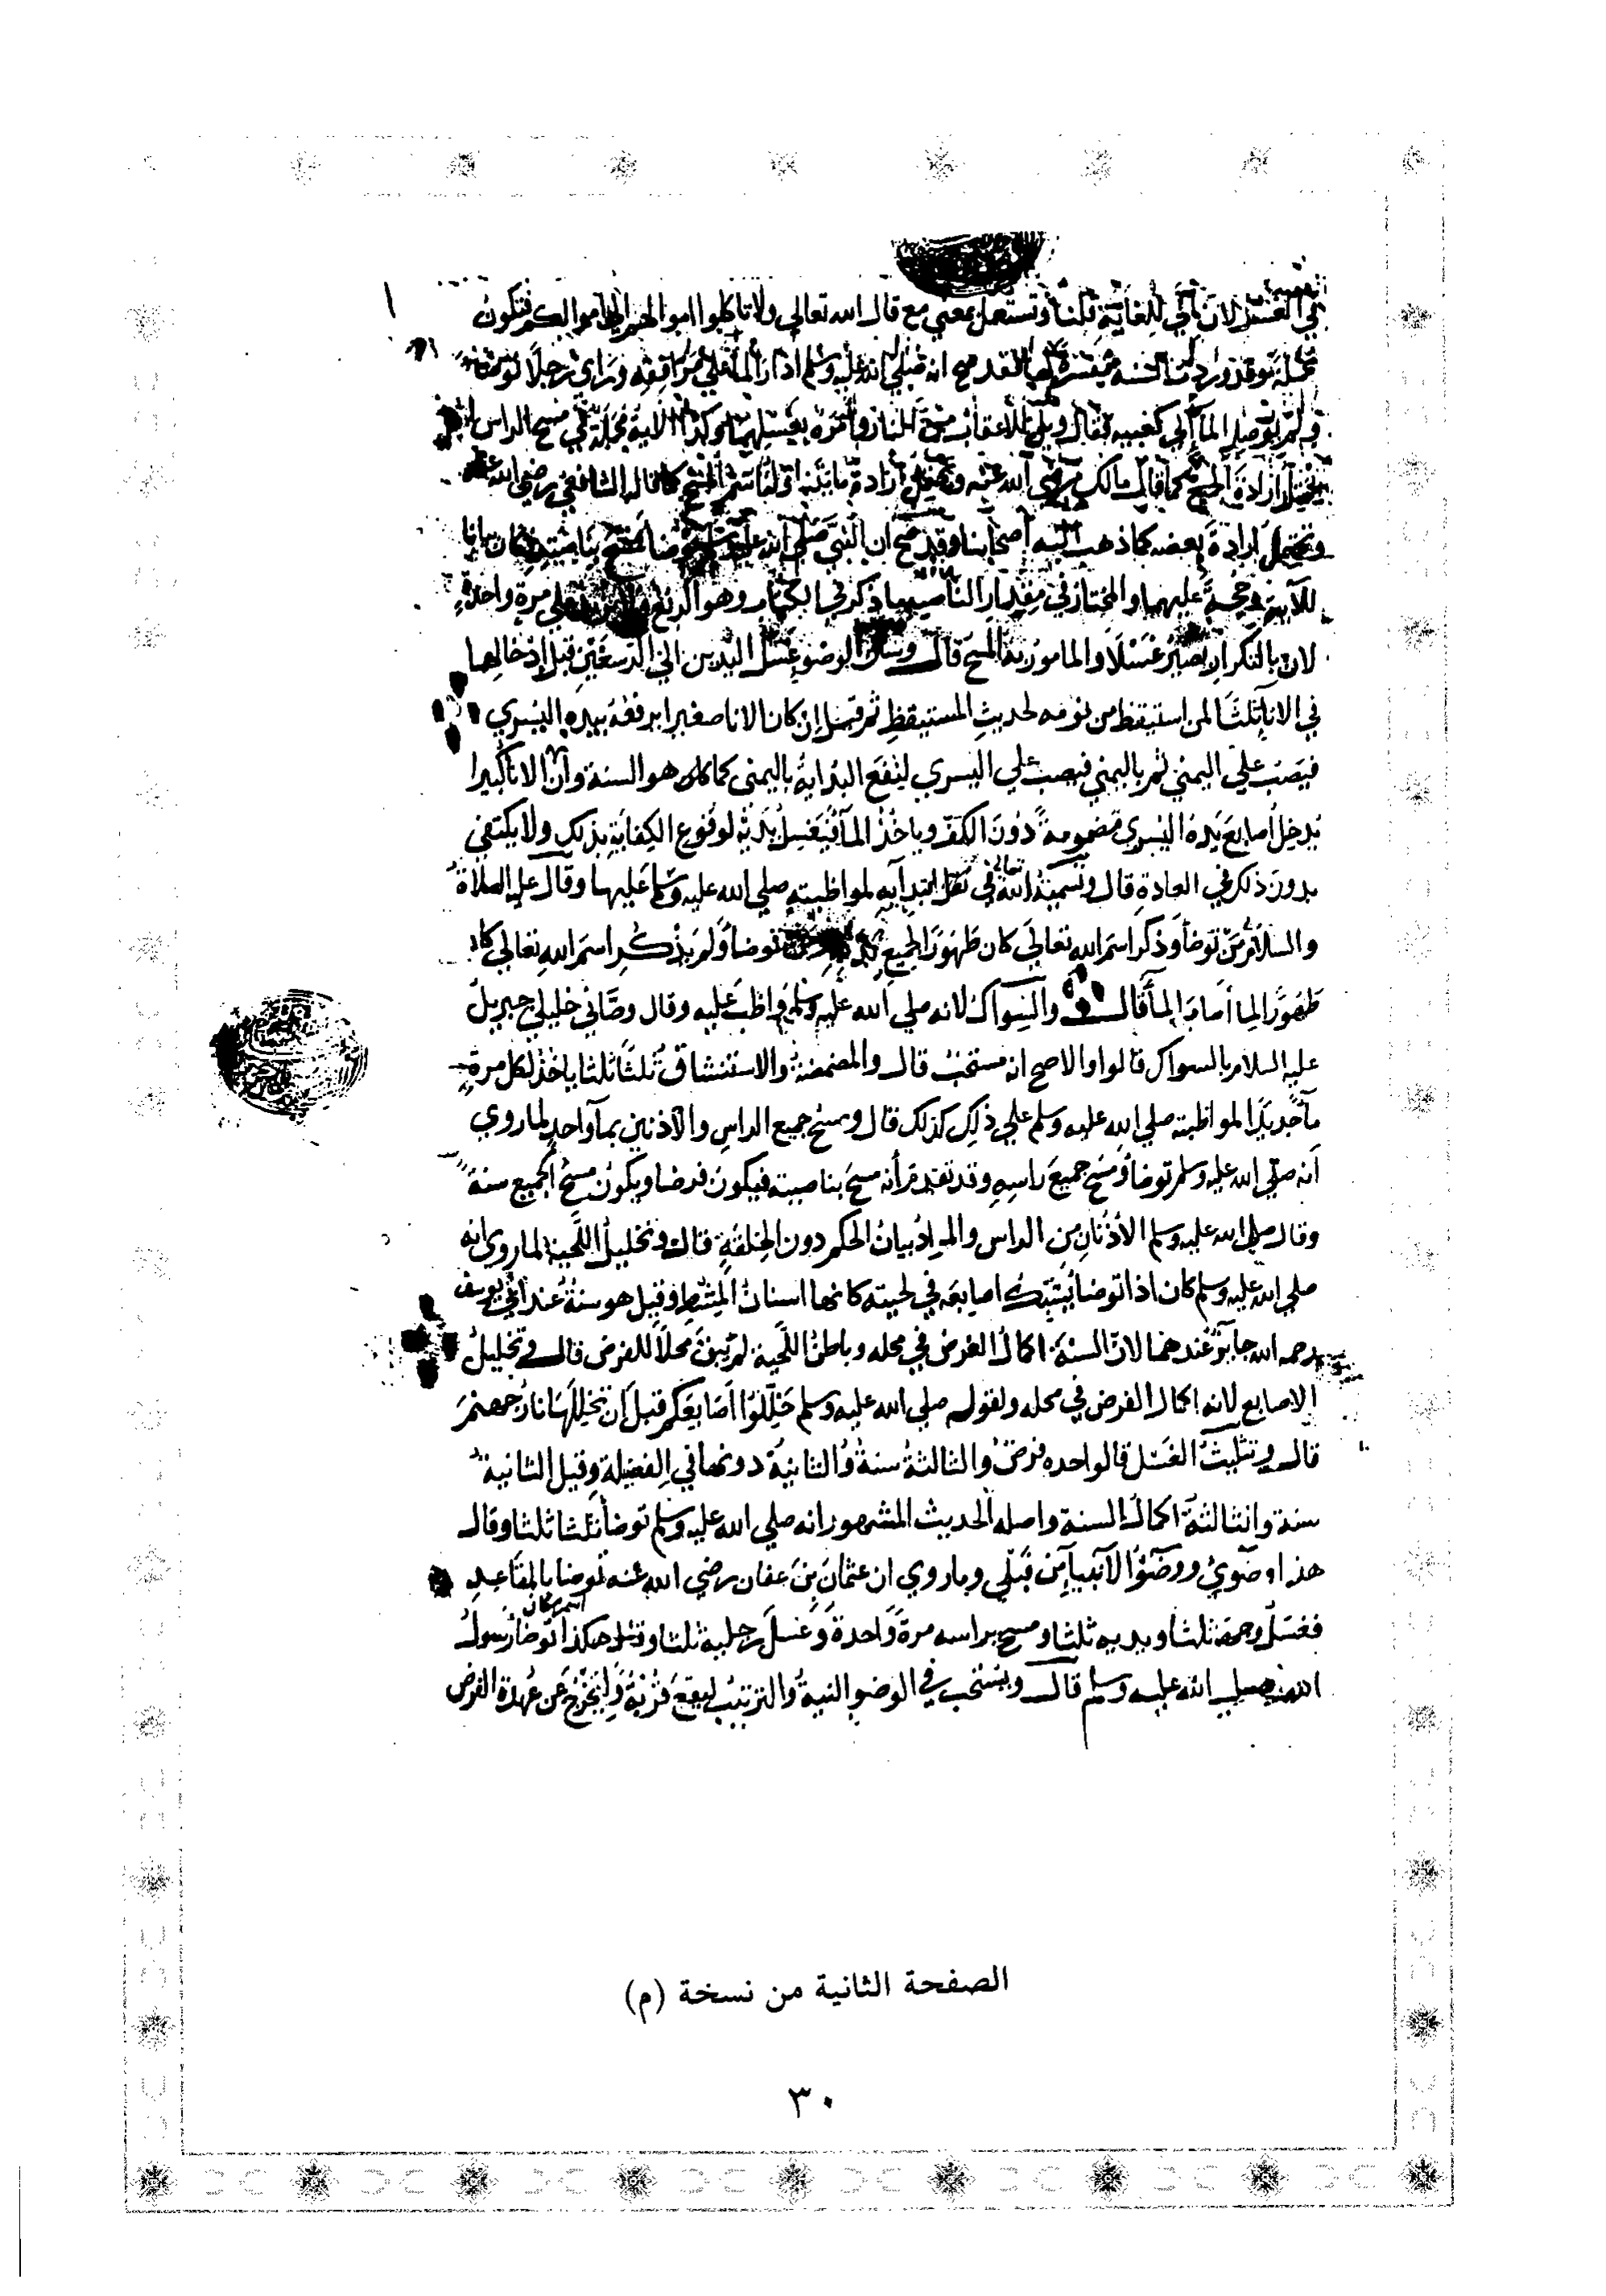 في الغسل لان الى للغاية قلنا وتستعمل بمعنى مع قال الله تعالى ولا تاكلوا اموالهم الى اموالكم فتكون
مجملة وقد وردت السنة مفسرة لها فقد صح انه صلى الله عليه وسلم ادار الما على مرافقه وراى رجلا توضا
ولم يوصل الما الى كعبيه فقال ويل للاعقاب من النار وامره بغسلهما وكذا الاية مجملة في مسح الراس
يحتمل ارادة الجميع كما قال مالك رضي الله عنه ويحتمل ارادة ما يتناوله اسم المسح كما قاله الشافعي رضي الله عنه
ويحتمل ارادة بعضه كما ذهب اليه اصحابنا وقد صح ان النبي صلى الله عليه وسلم توضا فمسح بناصيته فكان بيانا
للآية وحجة عليهما والمختار في مقدار الناصية ما ذكر في الكتاب وهو الربع على مرة واحدة
لان بالتكرار يصير غسلا والمامور به المسح قال وسنن الوضوء غسل اليدين الى الرسغين قبل ادخالهما
في الاناء ثلثا لمن استيقظ من نومه لحديث المستيقظ ثم قيل ان كان الانا صغيرا يرفعه بيده اليسرى
فيصب على اليمنى ثم باليمنى فيصب على اليسرى ليقع البداية باليمنى كما هو السنة وان الانا كبيرا
يدخل اصابع يده اليسرى مضمومة دون الكف وياخذ الماء فيغسل يديه لوقوع الكفاية بذلك ولا يكتفي
بدون ذلك في العادة قال وتسمية الله تعالى في ابتدايه لمواظبته صلى الله عليه وسلم عليها وقال عليه الصلاة
والسلام من توضا وذكر اسم الله تعالى كان طهورا لجميع بدنه ومن توضا ولم يذكر اسم الله تعالى كان
طهورا لما اصابه الما قال والسواك لانه صلى الله عليه وسلم واظب عليه وقال وصاني خليلي جبريل
عليه السلام بالسواك قالوا والاصح انه مستحب قال والمضمضة والاستنشاق ثلثا ثلثا ياخذ لكل مرة
مآ جديدا لمواظبته صلى الله عليه وسلم على ذلك كذلك قال ومسح جميع الراس والاذنين بمآ واحد لما روي
انه صلى الله عليه وسلم توضا ومسح جميع راسه وقد تقدم انه مسح بناصيته فيكون فرضا ويكون مسح الجميع سنة
وقال صلى الله عليه وسلم الاذنان من الراس والمراد بيان الحكم دون الخلقة قال وتخليل اللحية لما روي انه
صلى الله عليه وسلم كان اذا توضا يشبك اصابعه في لحيته كانها اسنان المشط وقيل هو سنة عند ابي يوسف
رحمه الله جائز عندهما لان السنة اكمال الفرض في محله وباطن اللحية لم يبق محلا للفرض قال وتخليل
الاصابع لانه اكمال الفرض في محله ولقوله صلى الله عليه وسلم خللوا اصابعكم قبل ان تخللها نار جهنم
قال وتثليث الغسل فالواحده فرض والثالثة سنة والثانية دونها في الفضيلة وقيل الثانية
سنة والثالثة اكمال السنة واصله الحديث المشهور انه صلى الله عليه وسلم توضا ثلثا ثلثا وقال
هذا وضوئ ووضوؤ الانبيآ من قبلي وما روي ان عثمان بن عفان رضي الله عنه توضا بالمقاعد
اسم مكان
فغسل وجهه ثلثا ويديه ثلثا ومسح براسه مرة واحدة وغسل رجليه ثلثا وقال هكذا توضا رسول
الله صلى الله عليه وسلم قال ويستحب في الوضوء النية والترتيب ليقع قربة وليخرج عن عهدة الفرض
الصفحة الثانية من نسخة (م)
٣٠